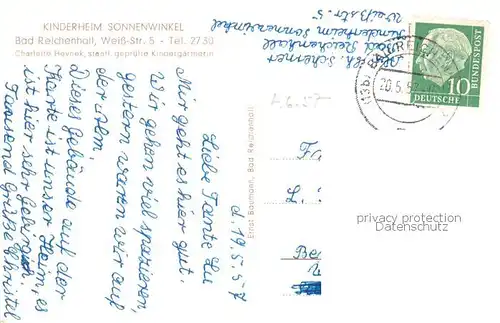 KINDERHEIM SONNENWINKEL
Bad Reichenhall, Weiß-Str. 5 - Tel. 2730
Charlotte Pevnek, staatl. geprüfte Kindergärtnerin
d. 19.5.57
Liebe Tante Lu
Mir geht es hier gut.
Wir gehen viel spazieren,
gestern waren wir auf
der Alm.
Dieses Gebäude auf der
Karte ist unser Heim, es
ist hier sehr gebirgich.
Tausend Grüße Christel
Ernst Baumann, Bad Reichenhall
Abs. Ch. Scherner
Bad Reichenhall
Kinderheim Sonnenwinkel
Weißstr. 5
(13b) BAD REICHENHALL
20.5.57
10
DEUTSCHE
BUNDESPOST
F
L.
Be
privacy protection
Datenschutz